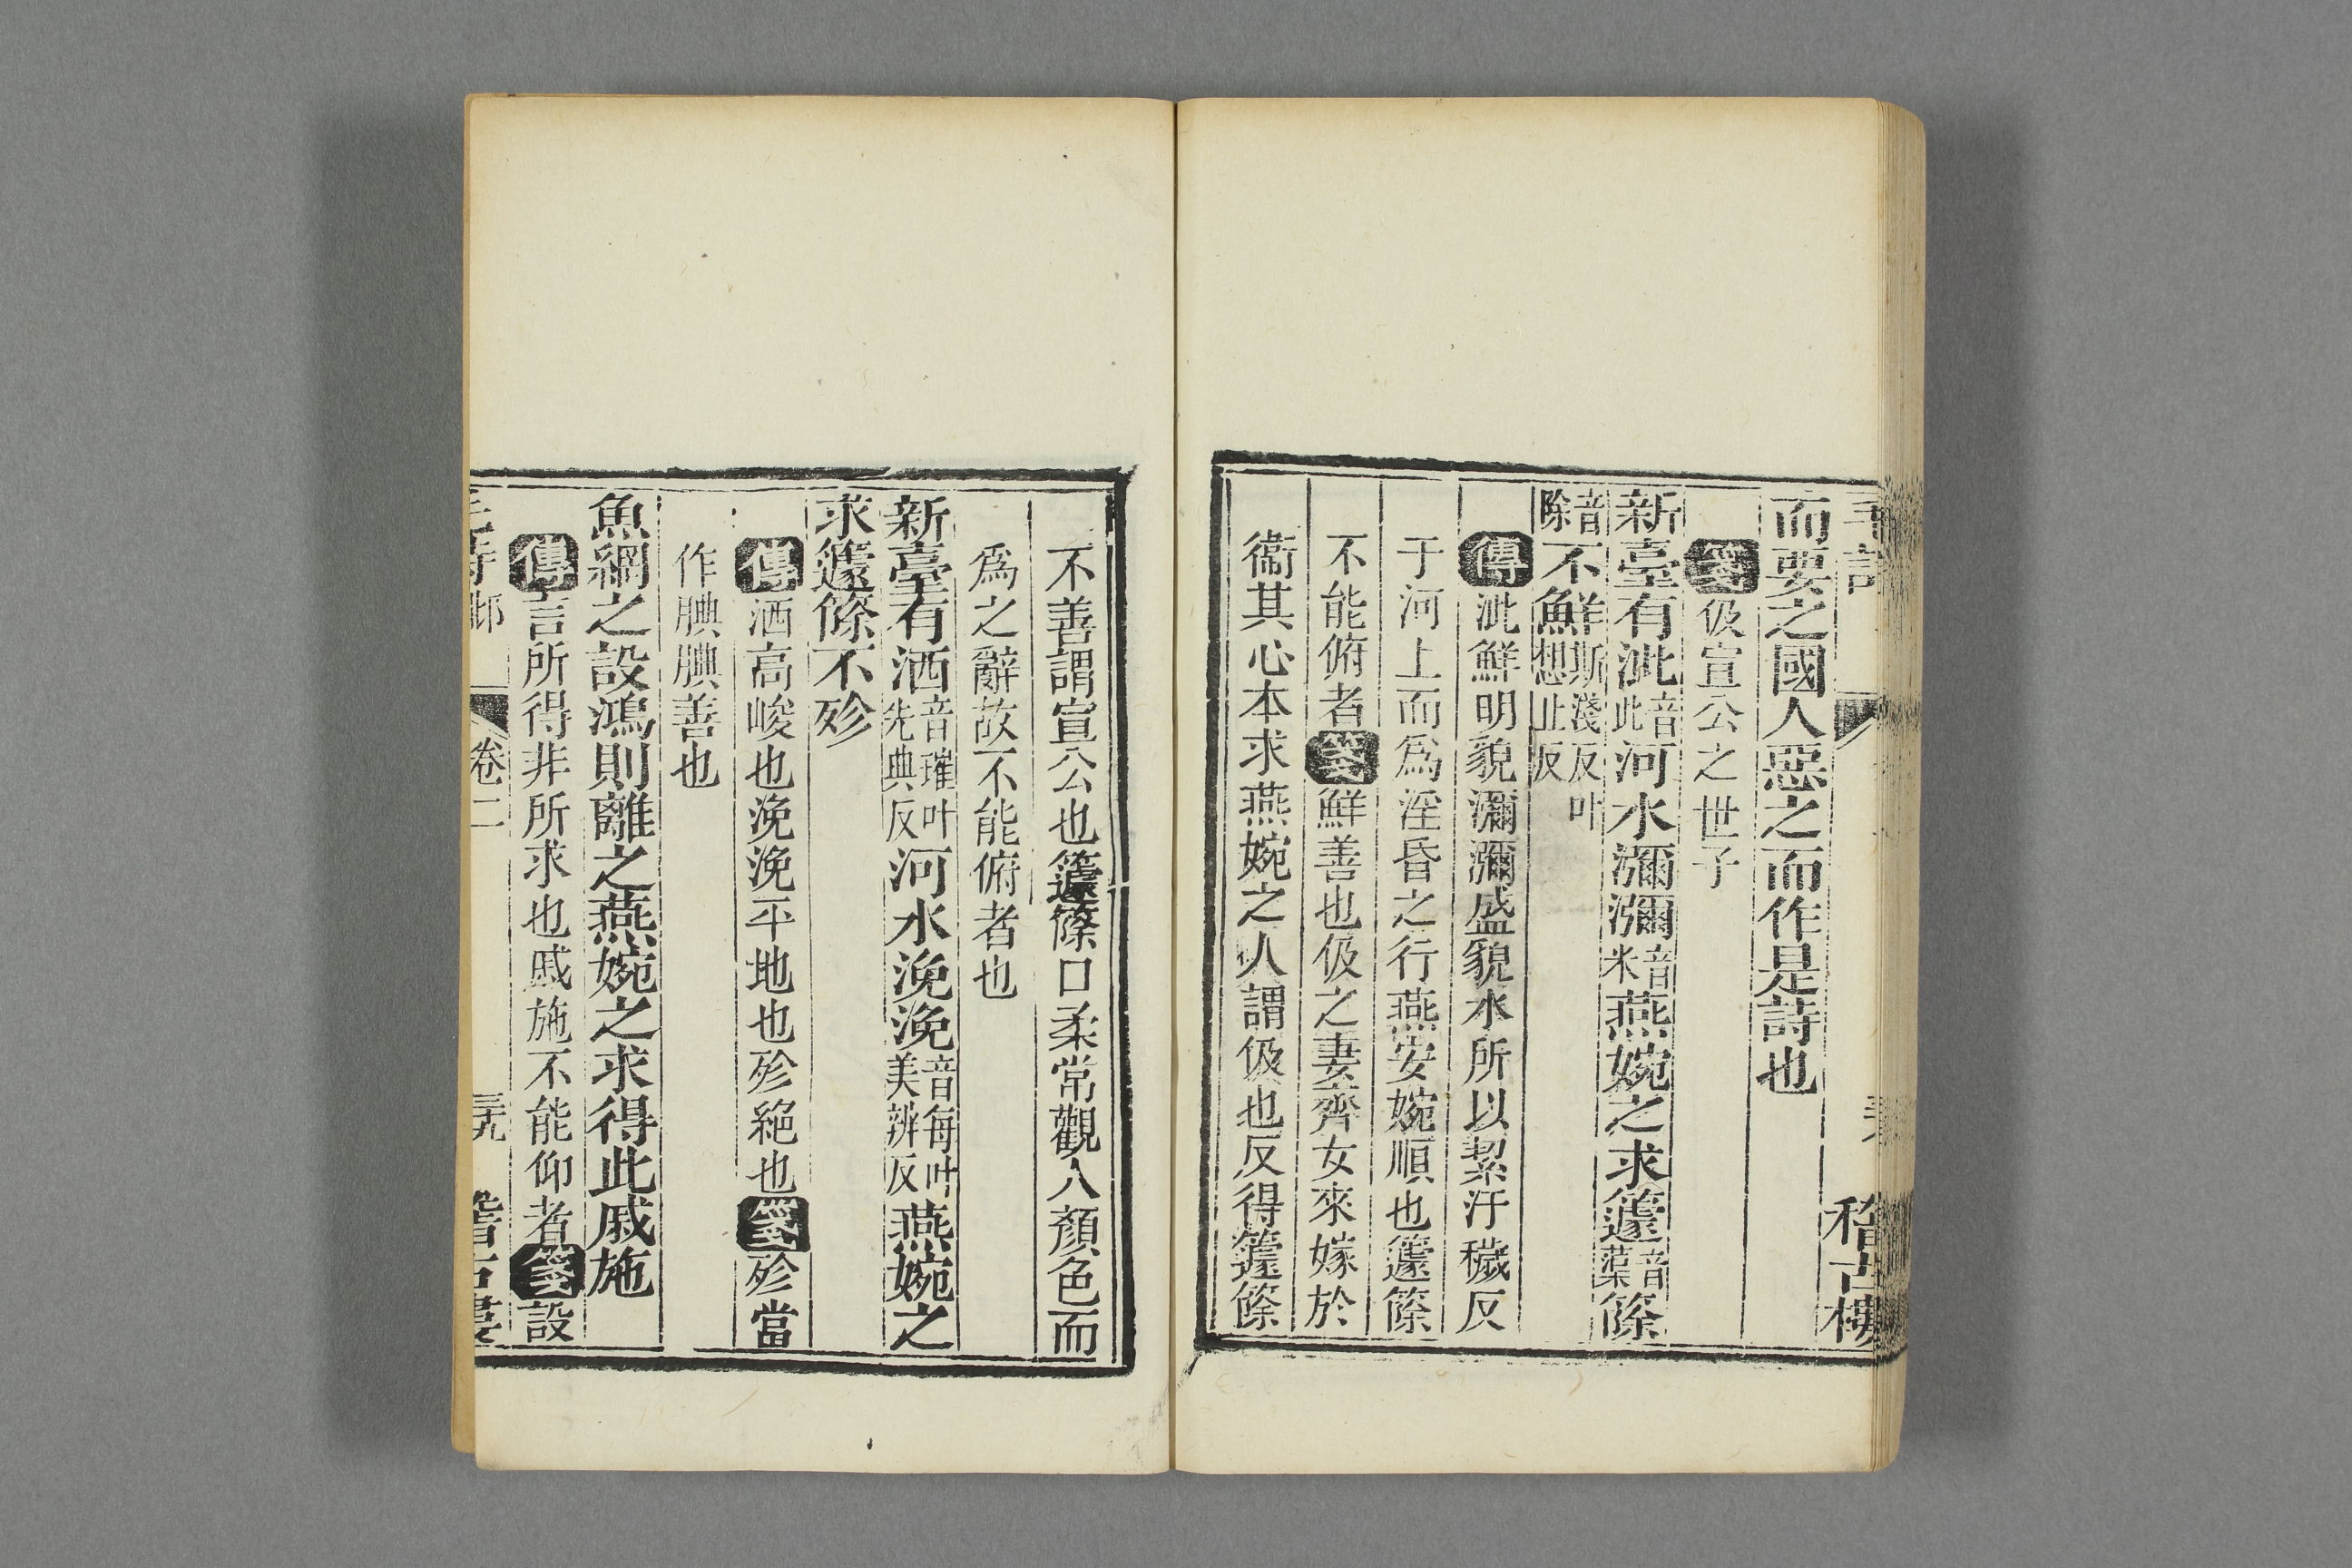 而要之國人惡之而作是詩也
箋伋宣公之世子
新臺有泚音此河水瀰瀰音米燕婉之求籧音蕖篨
音除不鮮斯淺反叶想止反
傳泚鮮明貌瀰瀰盛貌水所以絜汙穢反
于河上而爲淫昏之行燕安婉順也籧篨
不能俯者箋鮮善也伋之妻齊女來嫁於
衞其心本求燕婉之人謂伋也反得籧篨
稽古樓
不善謂宣公也籧篨口柔常觀人顏色而
爲之辭故不能俯者也
新臺有洒音璀叶先典反河水浼浼音每叶美辨反燕婉之
求籧篨不殄
傳洒高峻也浼浼平地也殄絶也箋殄當
作腆腆善也
魚網之設鴻則離之燕婉之求得此戚施
傳言所得非所求也戚施不能仰者箋設
毛詩邶 卷二 三九 稽古樓